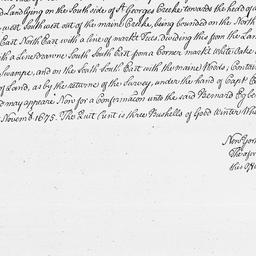 d Land lying on the South side of St Georges Creeke towards the head of a
west, South west out of the maine Creeke, being bounded on the North
East North East with a line of markt Trees, dividing this from the Land
th a Line drawne South South East from a Corner markt White Oake
Swampe, and on the South South East with the maine Woods, Contain
of Land, as by the returne of the Survey, under the hand of Capt
d may appeare Now for a Confirmacon unto the said Bernard Egbe
Novemb 1675. The Quit Rent is three Bushells of Good Winter Whe
New York
The afore
this